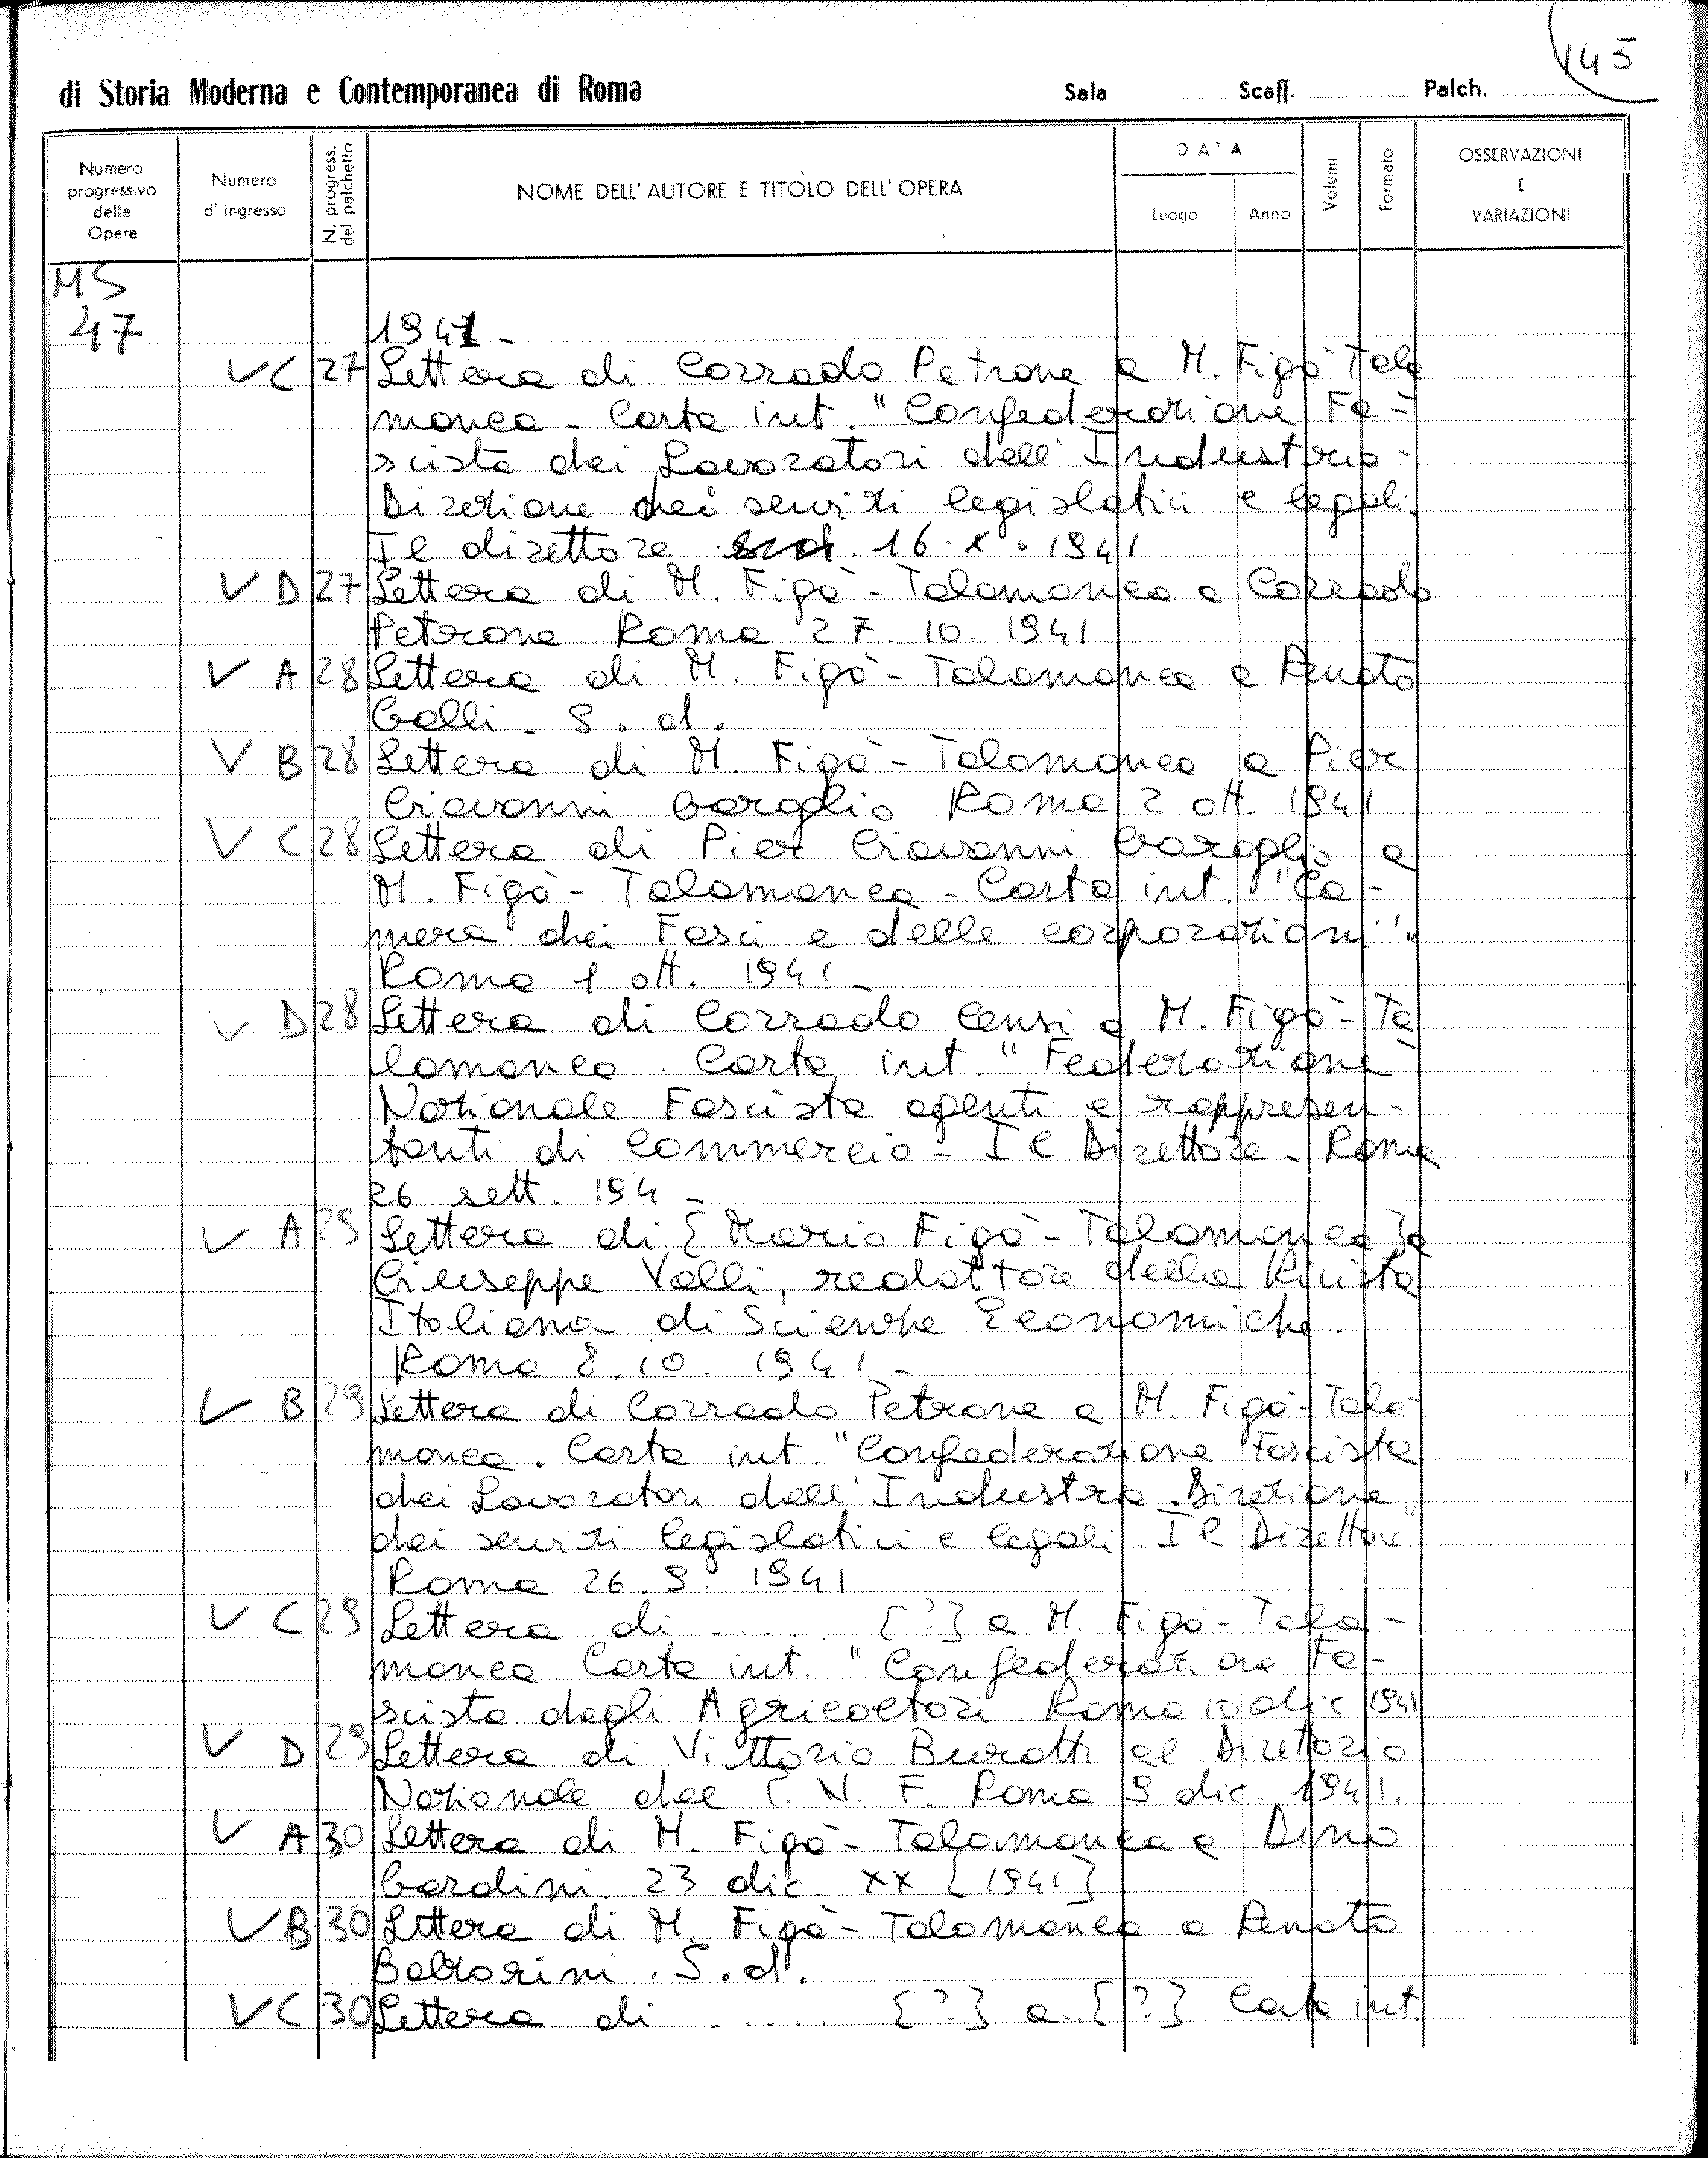 145
di Storia Moderna e Contemporanea di Roma Sala Scaff. Palch.
Numero progressivo delle Opere Numero d'ingresso N. progress. del palchetto NOME DELL'AUTORE E TITOLO DELL'OPERA DATA Luogo Anno Volumi Formato OSSERVAZIONI E VARIAZIONI
MS
47 1941 -
V C 27 Lettera di Corrado Petrone a M. Figà Tala
monca - Carta int. "Confederazione Fa-
scista dei Lavoratori dell'Industria -
Direzione dei servizi legislativi e legali.
Il direttore 16.X.1941
V D 27 Lettera di M. Figà - Talamonca a Corrado
Petrone Roma 27.10.1941
V A 28 Lettera di M. Figà - Talamonca a Renato
Galli - S.d.
V B 28 Lettera di M. Figà - Talamonca a Pier
Giovanni Garoglio Roma 2 ott. 1941
V C 28 Lettera di Pier Giovanni Garoglio a
M. Figà - Talamonca - Carta int. "Ca-
mera dei Fasci e delle corporazioni"
Roma 1 ott. 1941 -
V D 28 Lettera di Corrado Censi a M. Figà - Ta
lamonca. Carta int. "Federazione
Nazionale Fascista agenti e rappresen-
tanti di Commercio - Il Direttore - Roma
26 sett. 194 -
V A 29 Lettera di [Mario Figà - Talamonca] a
Giuseppe Valli, redattore della Rivista
Italiana di Scienze Economiche.
Roma 8.10.1941 -
V B 29 Lettera di Corrado Petrone a M. Figà - Tala-
monca. Carta int. "Confederazione Fascista
dei Lavoratori dell'Industria. Direzione
dei servizi legislativi e legali Il Direttore"
Roma 26.9.1941
V C 29 Lettera di ...... [?] a M. Figà - Tala-
monca Carta int. "Confederazione Fa-
scista degli Agricoltori Roma 10 dic 1941
V D 29 Lettera di Vittorio Buratti al Direttorio
Nazionale del P. N. F. Roma 9 dic. 1941.
V A 30 Lettera di M. Figà - Talamonca a Dino
Gardini. 23 dic. XX [1941]
V B 30 Lettera di M. Figà - Talamonca a Renato
S.d.
V C 30 Lettera di ...... [?] a [?] Carta int.